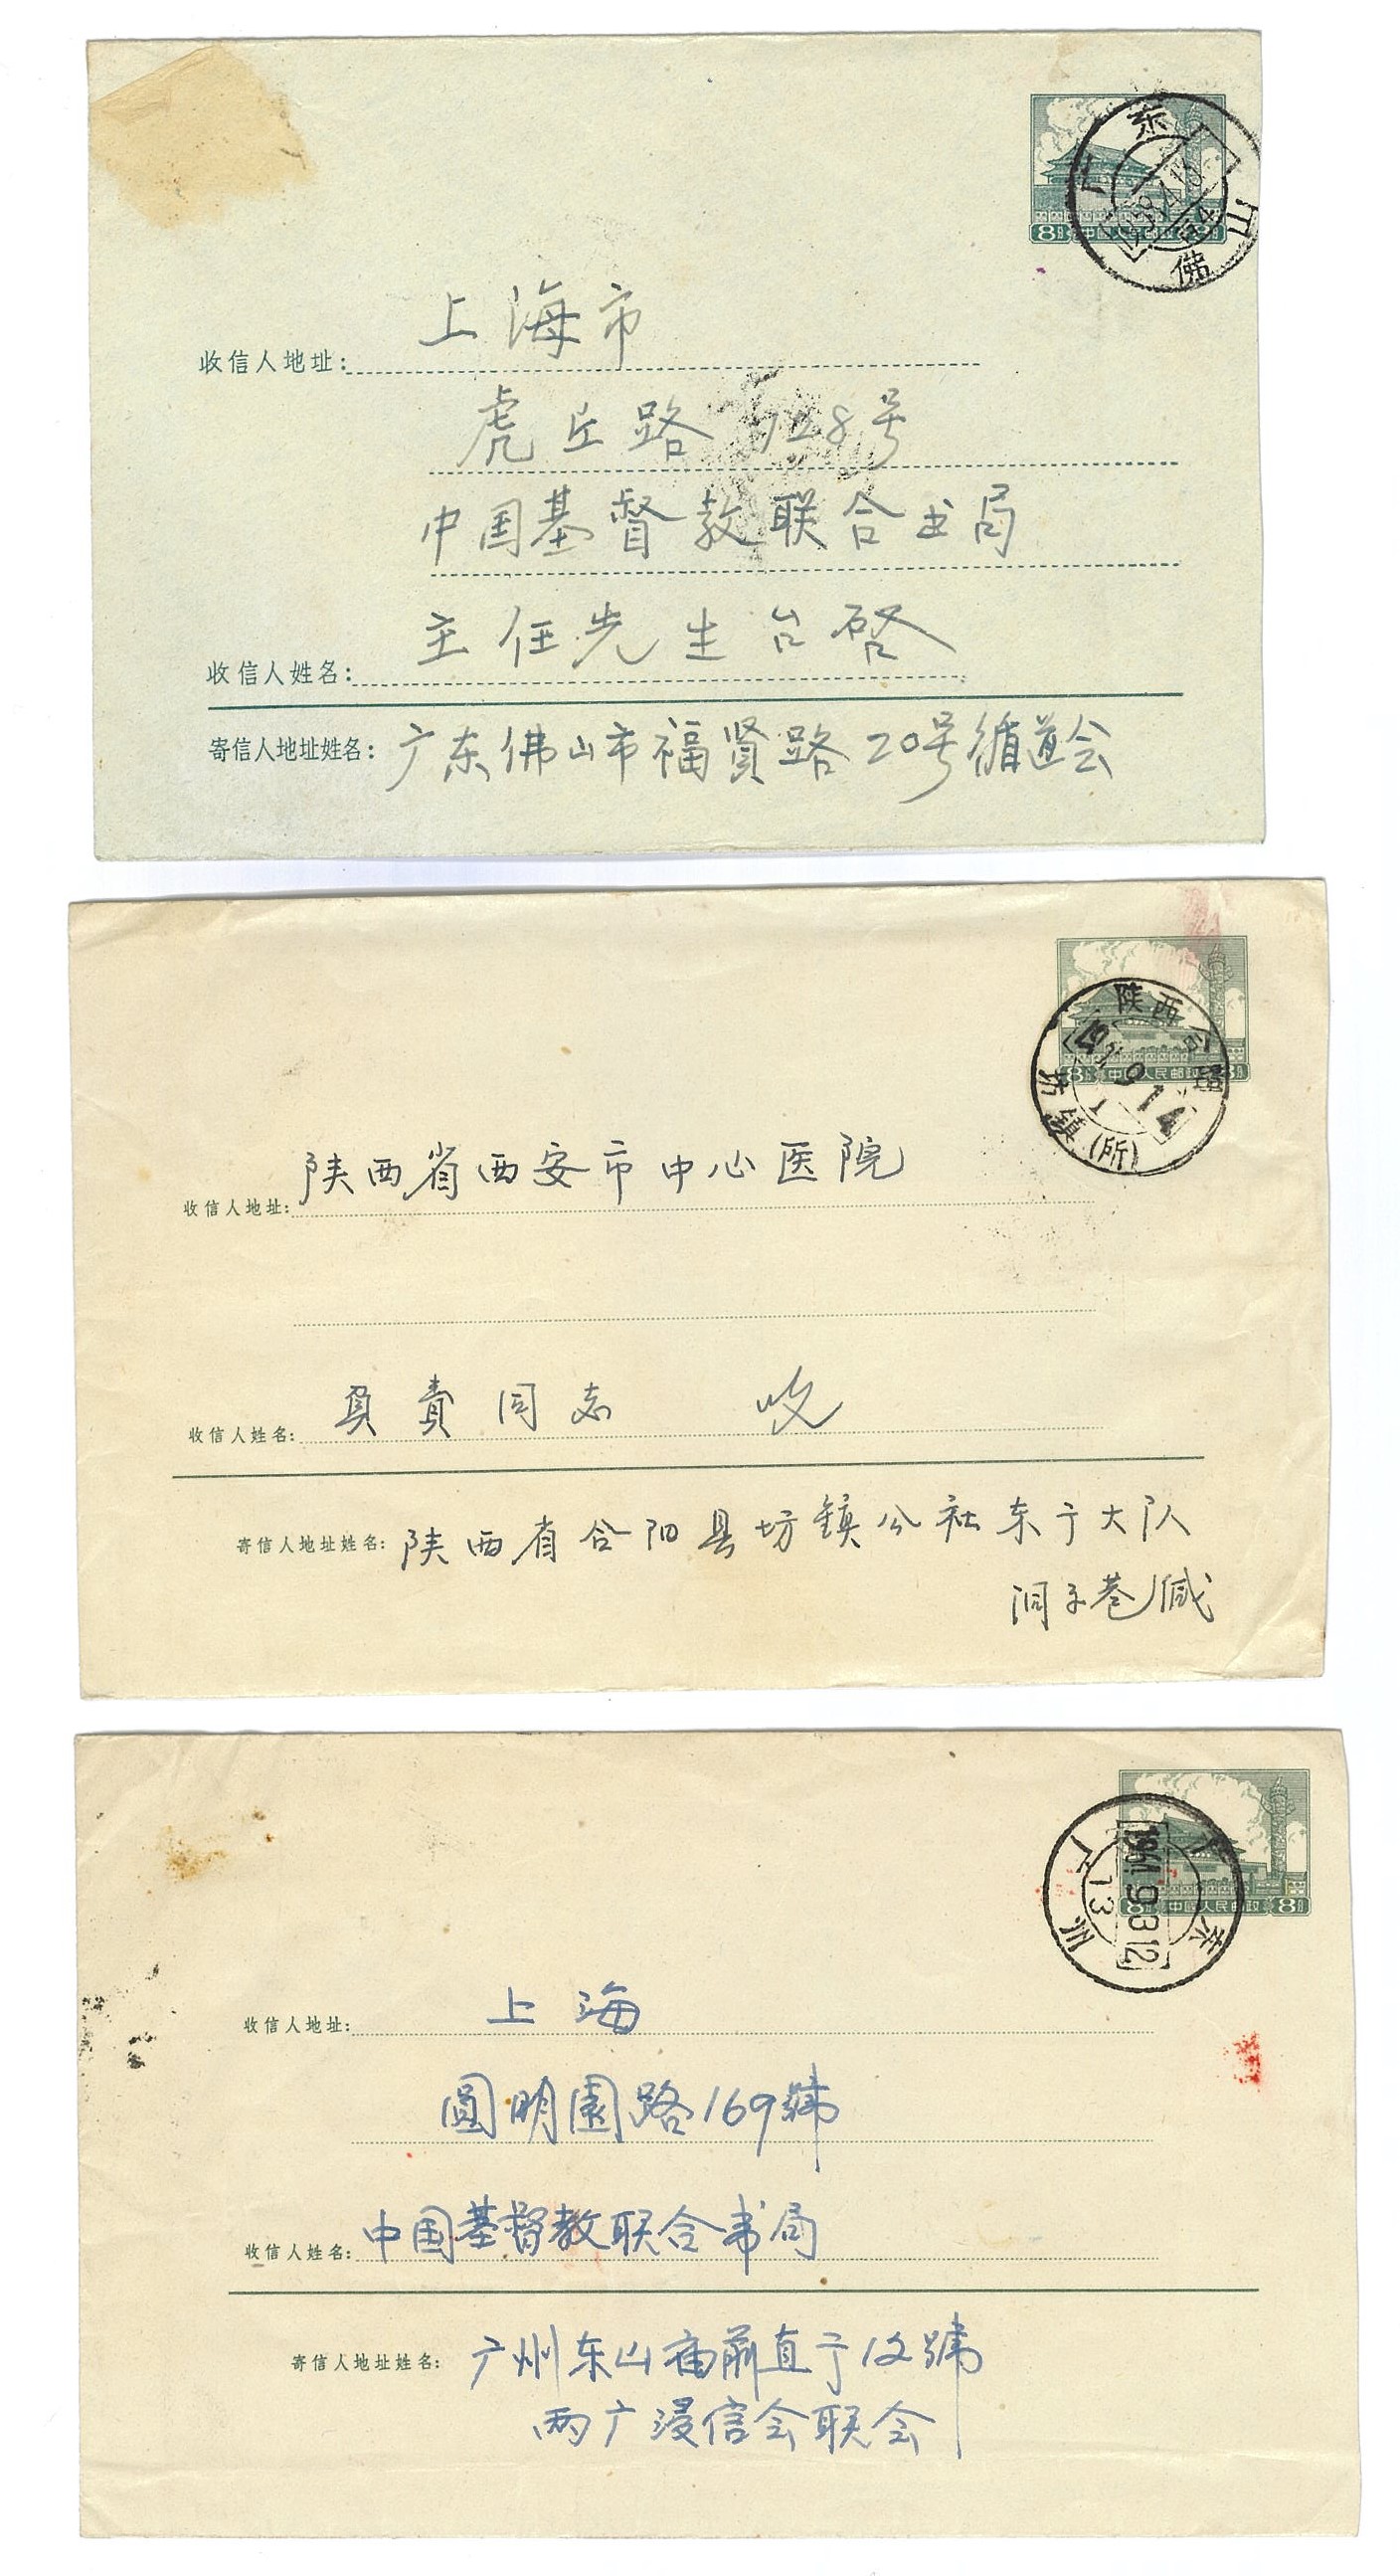 8分 中國人民邮政
广东 佛山
1958.4.13
收信人地址: 上海市
虎丘路128号
中国基督教联合书局
收信人姓名: 主任先生台启
寄信人地址姓名: 广东佛山市福贤路20号循道会
8分 中國人民邮政 8分
陕西合陽
坊镇(所)
9.14
收信人地址: 陕西省西安市中心医院
收信人姓名: 负责同志 收
寄信人地址姓名: 陕西省合阳县坊镇公社东宁大队
洞子巷
8分 中國人民邮政 8分
广东 广州
1961.9.3.12
13
收信人地址: 上海
圓明園路169號
收信人姓名: 中国基督教联合书局
寄信人地址姓名: 广州东山庙前直亍12號
两广浸信会联会